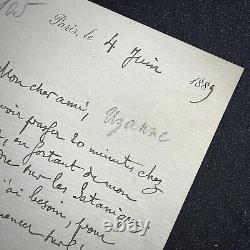 105
Paris, le 4 Juin 1889
Mon cher ami, Uzanne
voir passer 20 minutes chez
en sortant de mon
sur les Satani
ai besoin, pour